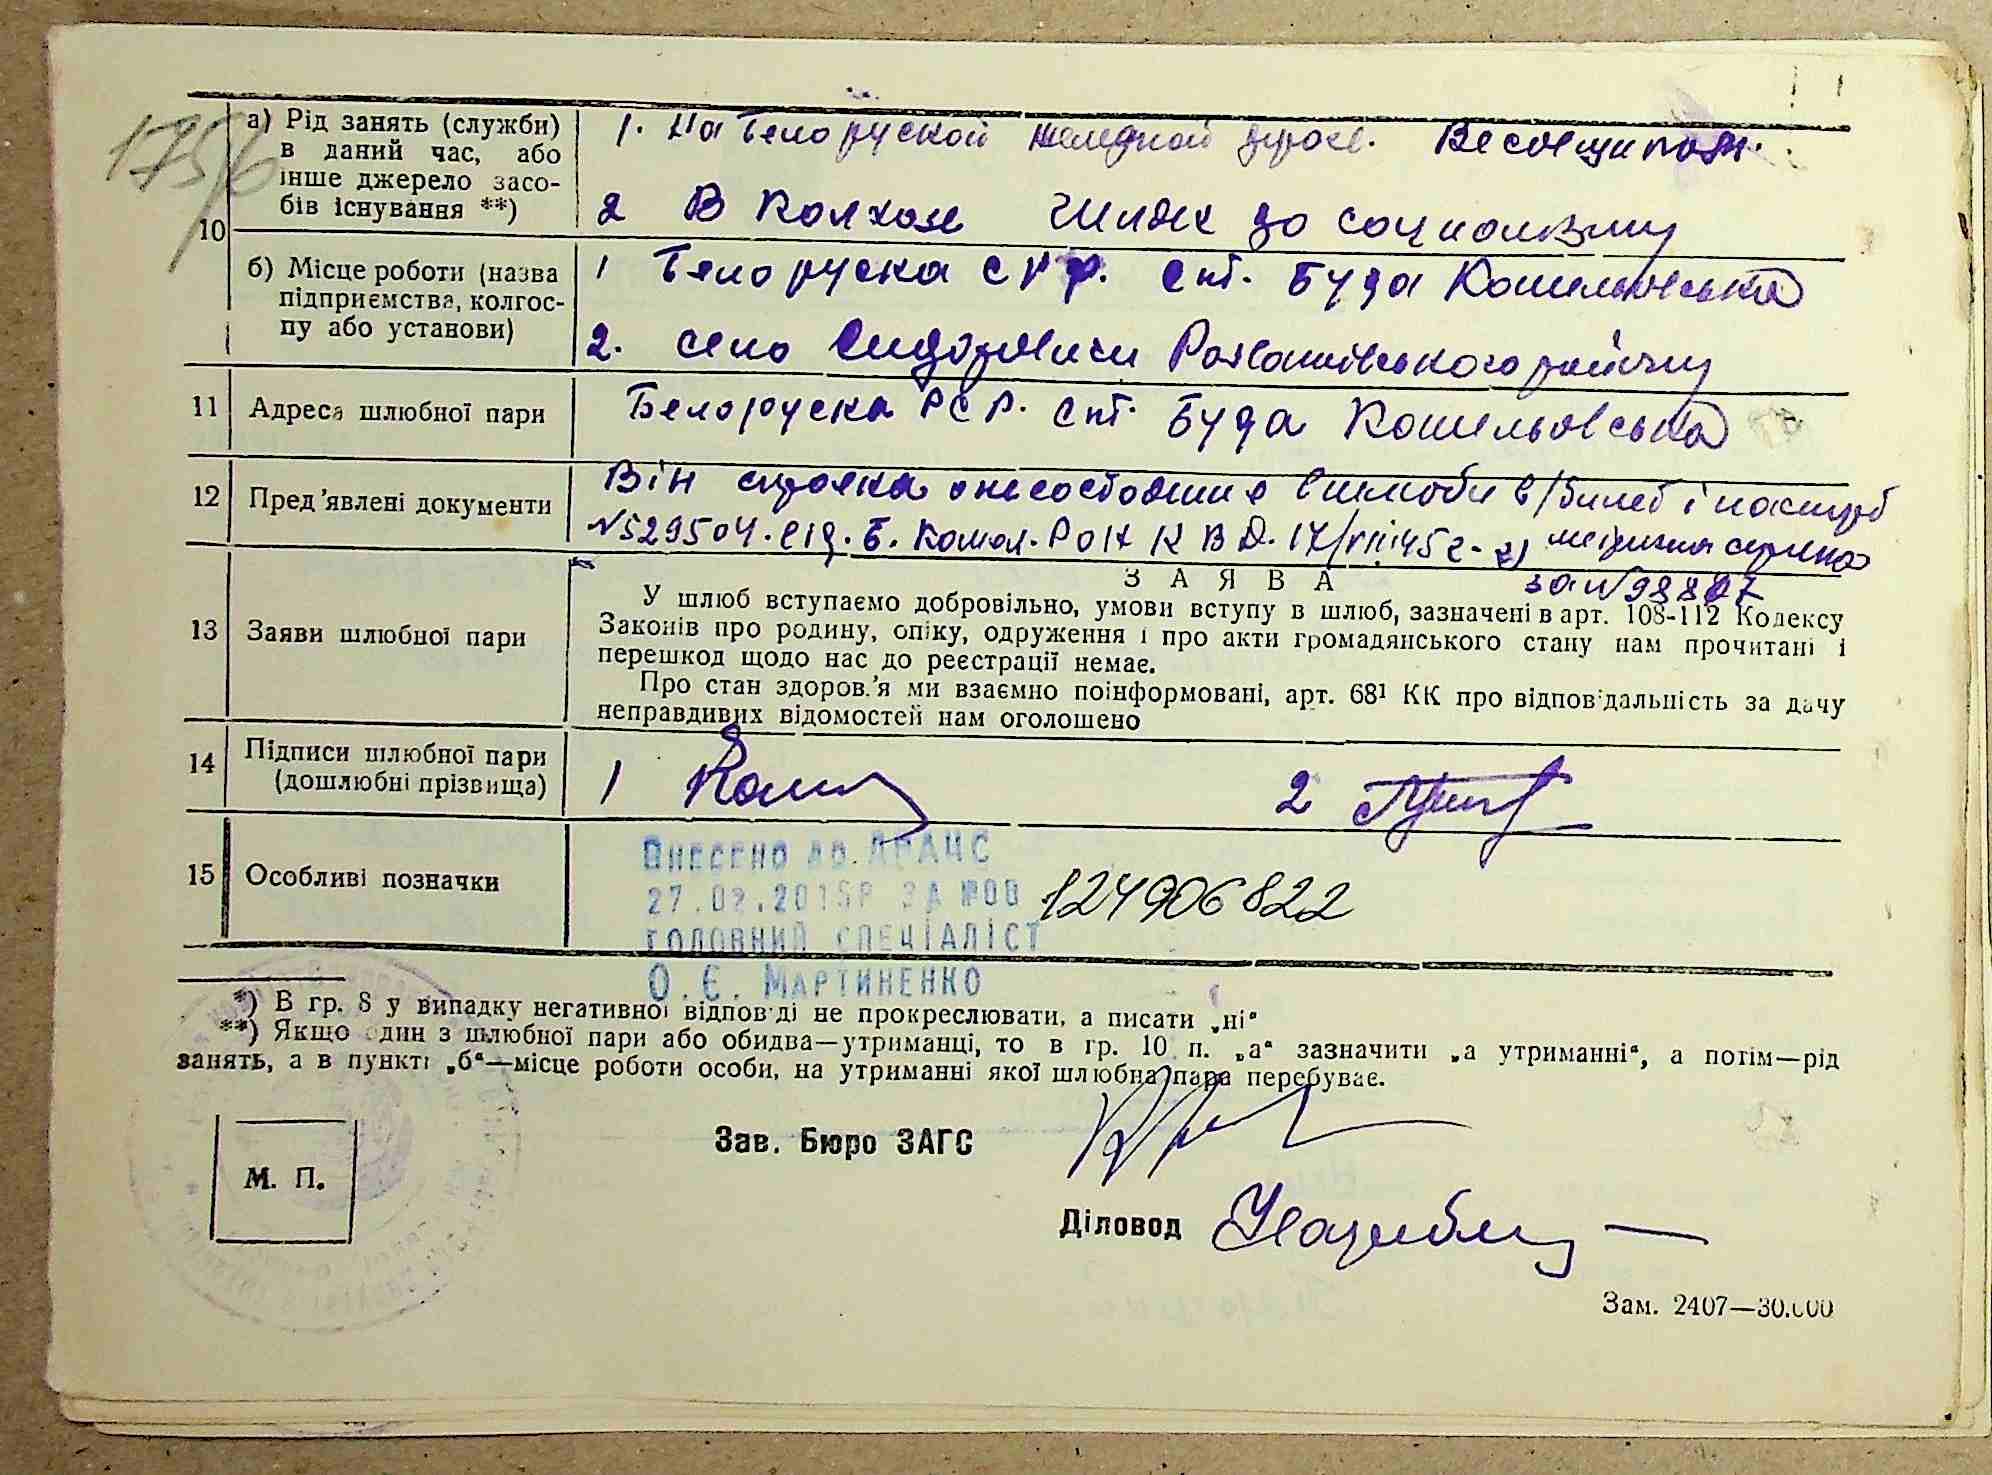 175/6
10
а) Рід занять (служби)
в даний час, або
інше джерело засо-
бів існування **)
1. На Белоруской железной
2 В Колхозе Шлях до социолизму
б) Місце роботи (назва
підприємства, колгос-
пу або установи)
1 Белоруска Спт. Буда Кошельовська
2. село Сидоровичи району
11 Адреса шлюбної пари
Белоруска РСР. Спт. Буда Кошельовська
12 Пред'явлені документи
Він в/билет і паспорт
N529504. від. Б. Кошел. РО Н К В Д. 17/VIII 45 г. 2)
за N98807
13 Заяви шлюбної пари
ЗАЯВА
У шлюб вступаємо добровільно, умови вступу в шлюб, зазначені в арт. 108-112 Кодексу
Законів про родину, опіку, одруження і про акти громадянського стану нам прочитані і
перешкод щодо нас до реєстрації немає.
Про стан здоров.'я ми взаємно поінформовані, арт. 68¹ КК про відповідальність за дачу
неправдивих відомостей нам оголошено
14 Підписи шлюбної пари
(дошлюбні прізвища)
1 2
15 Особливі позначки
ВНЕСЕНО ДО ДРАЦС
27.02.2015Р ЗА №00 124906822
ГОЛОВНИЙ СПЕЦІАЛІСТ
О.Є. МАРТИНЕНКО
*) В гр. 8 у випадку негативної відповіді не прокреслювати, а писати „ні“
**) Якщо один з шлюбної пари або обидва—утриманці, то в гр. 10 п. „а“ зазначити „а утриманні“, а потім—рід
занять, а в пункті „б“—місце роботи особи, на утриманні якої шлюбна пара перебуває.
Зав. Бюро ЗАГС
М. П.
Діловод
Зам. 2407—30.000